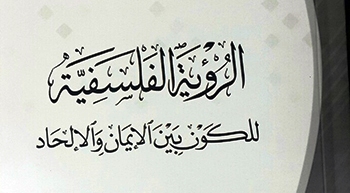 الرؤية الفلسفية
للكون بين الإيمان والإلحاد